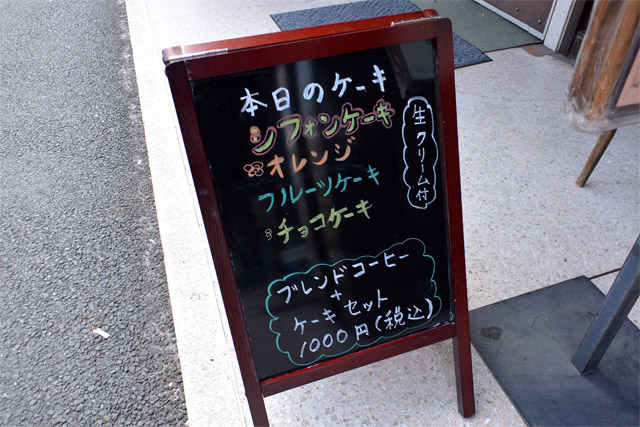 本日のケーキ
シフォンケーキ
オレンジ
フルーツケーキ
チョコケーキ
生クリーム付
ブレンドコーヒー
+
ケーキセット
1000円(税込)